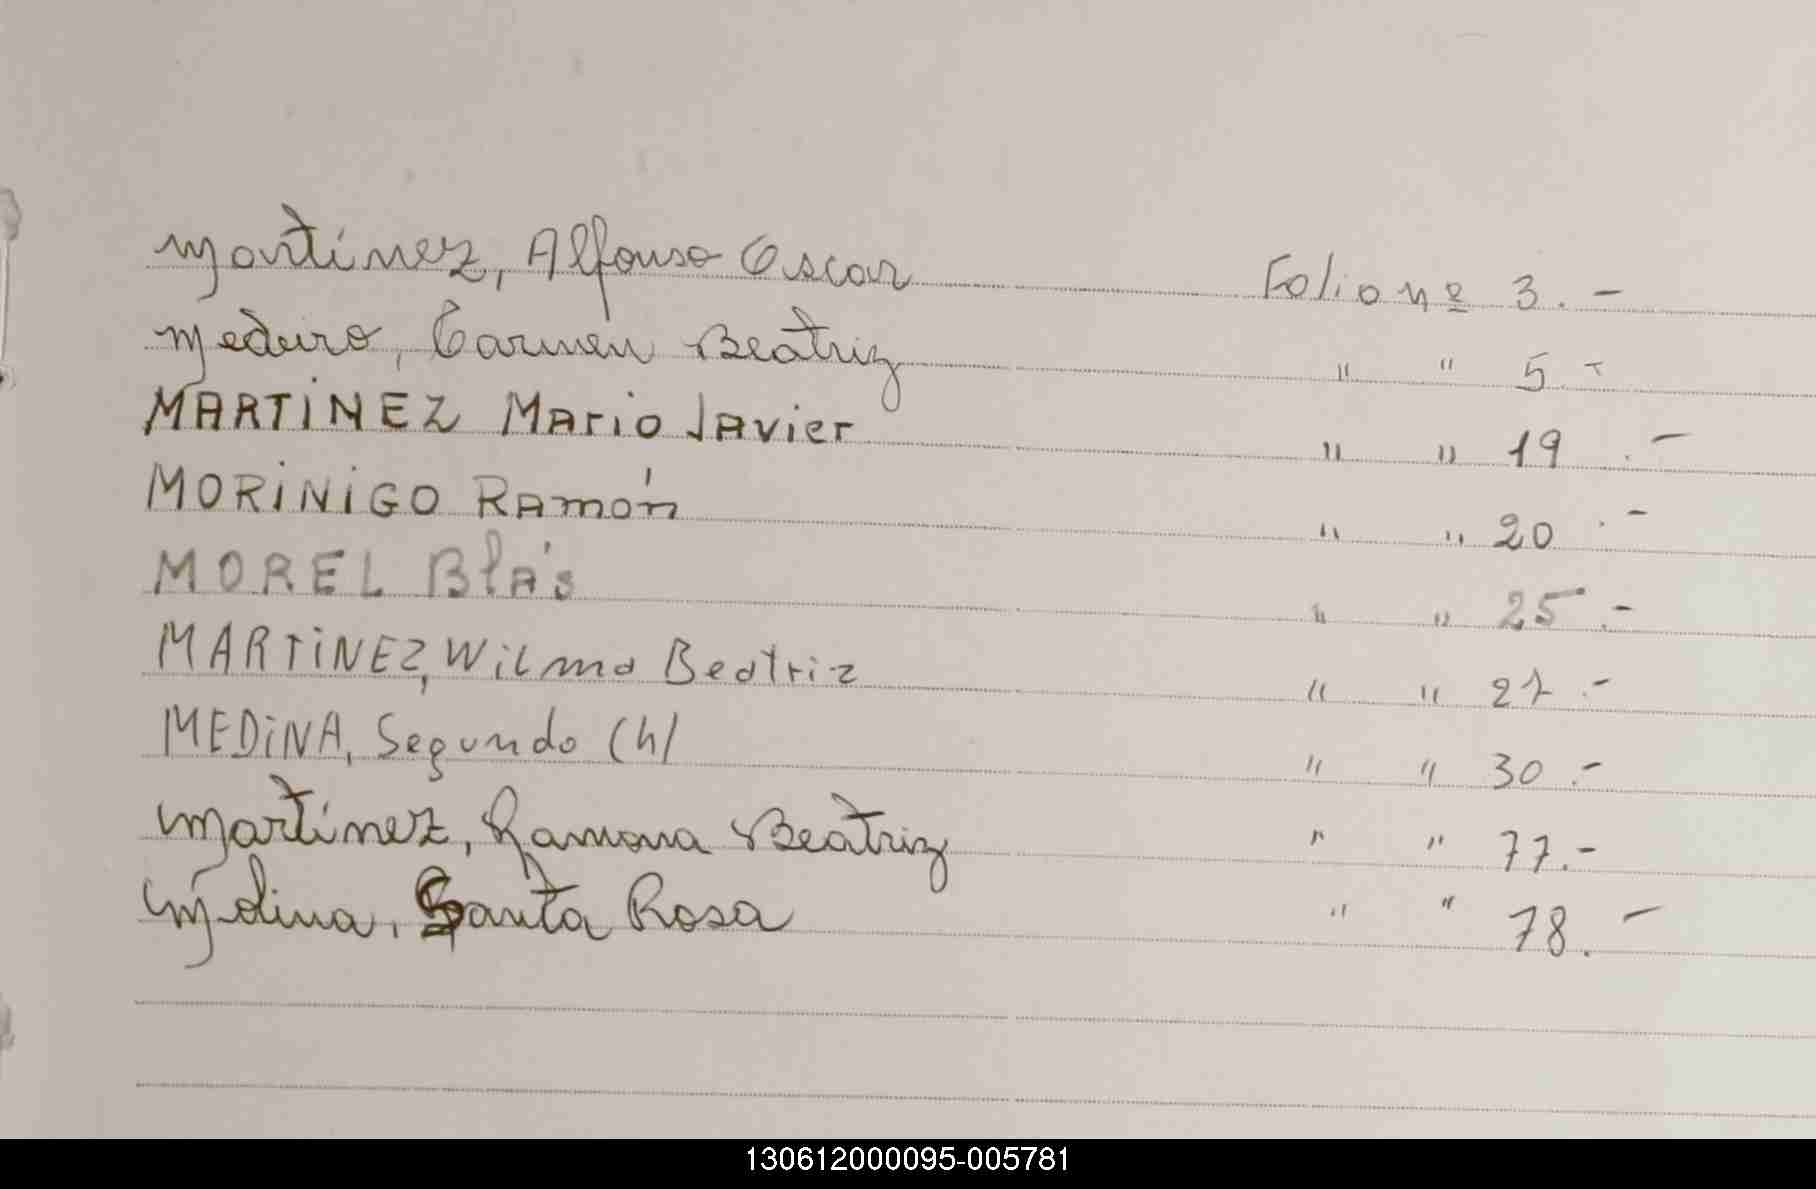 Martinez, Alfonso Oscar Folio nº 3.-
Medeiro, Carmen Beatriz " " 5.-
MARTINEZ Mario Javier " " 19.-
MORINIGO Ramón " " 20.-
MOREL Blás " " 25.-
MARTINEZ, Wilma Beatriz " " 27.-
MEDINA, Segundo (h) " " 30.-
Martinez, Ramona Beatriz " " 77.-
Molina, Santa Rosa " " 78.-
130612000095-005781